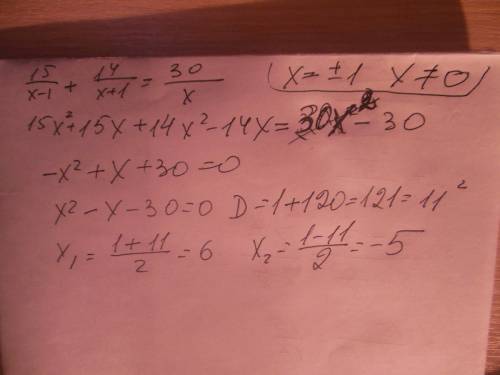 15/(x-1) + 14/(x+1) = 30/x (x = ±1 x ≠ 0)
15x²+15x+14x²-14x=30x²-30
-x²+x+30=0
x²-x-30=0 D=1+120=121=11²
x₁ = (1+11)/2 = 6 x₂ = (1-11)/2 = -5